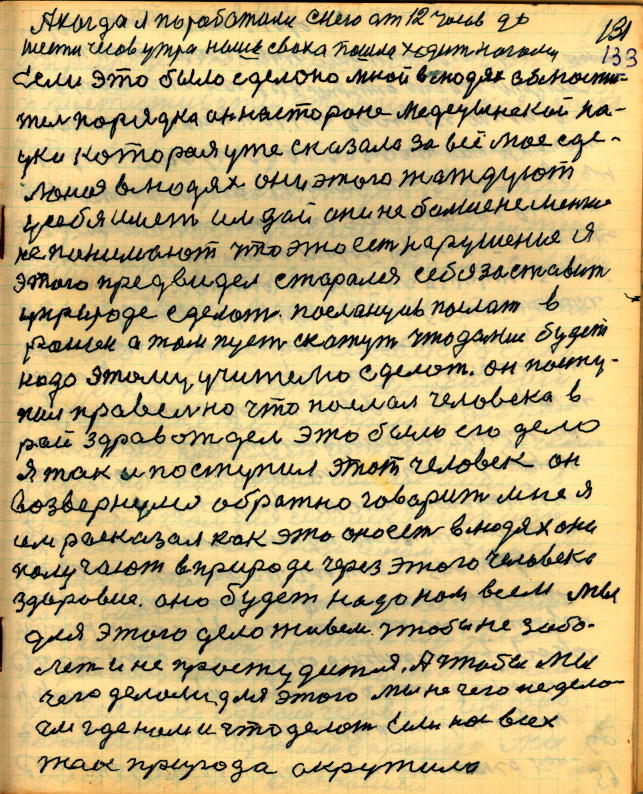 А когда я поработали с него от 12 часов до
шести часов утра наше сваха пошла ходит ногами
131
133
Если это было сделоно мной в людях
порядка он на стороне медецынской на-
уки которая уже сказала за всё мое зде-
лоное в людях они этого жаждуют
усебя имет им дай они не более не менше
не понимают что это ест нарушение я
этого предвидел старался себя заставит
уприроде сделот послат в
раён а там пуст скажут что дальше будет
надо этому учителю сделот. он посту-
пил правелно что послал человека в
рай здрав отдел это было его дело
я так и поступил этот человек он
возвернулся обратно говорит мне я
им расказал как это оно ест в людях они
получают в природе через этого человека
здоровие. оно будет надо нам всем мы
для этого дело живем. чтобы не забо-
лет и не простудится. А чтобы мы
чего делоли для этого мы не чего недело-
ем где нам и что делот Если нас всех
так природа окружила